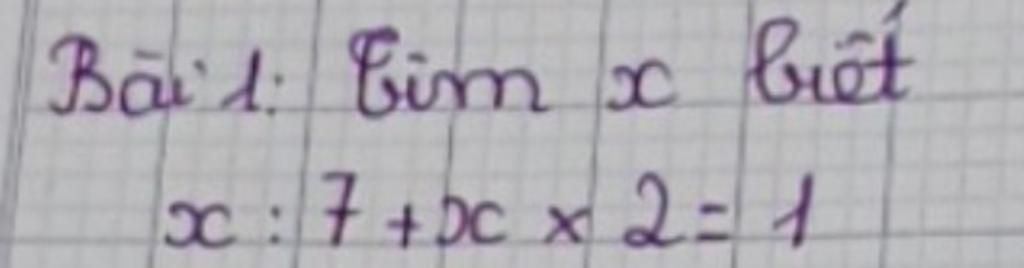 Bài 1: Tìm x biết
x : 7 + x × 2 = 1